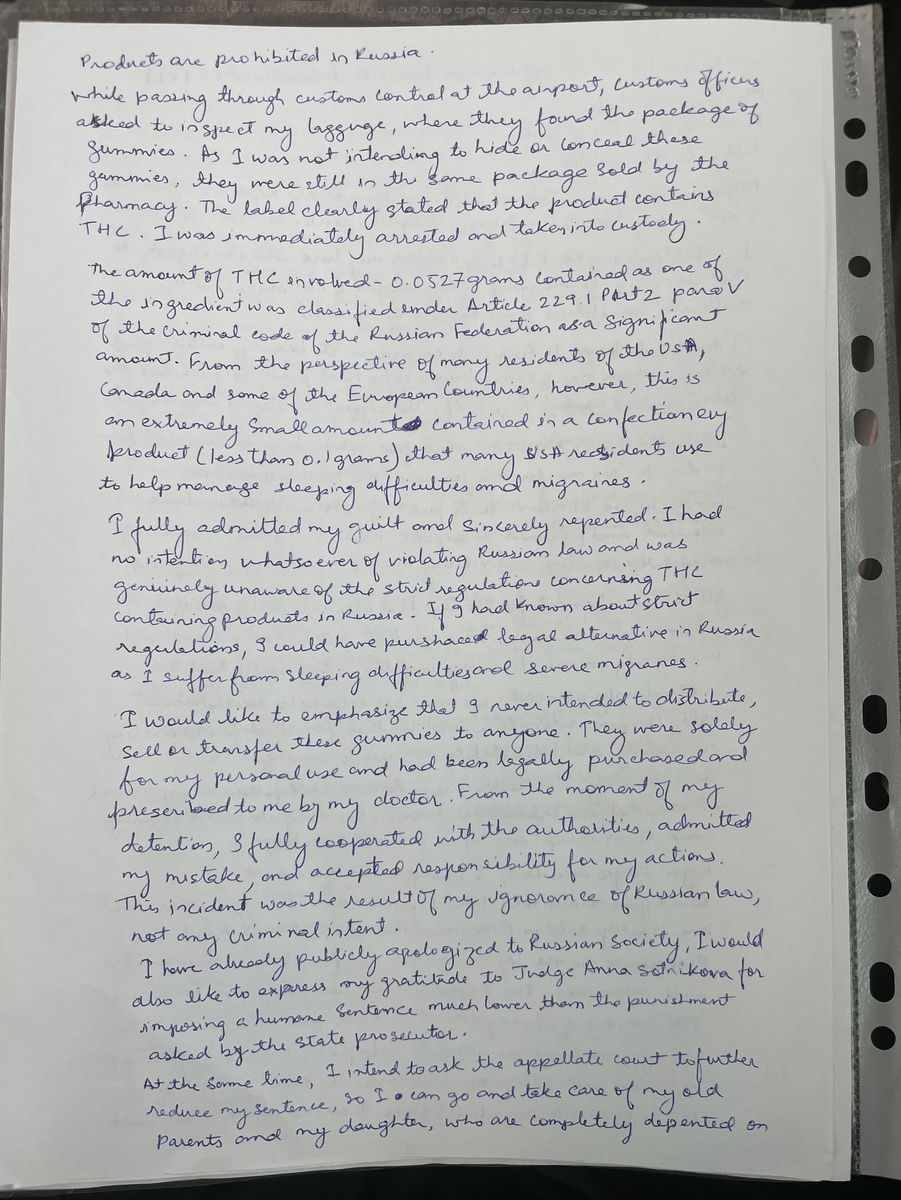 Products are prohibited in Russia.
While passing through customs control at the airport, customs officers
asked to inspect my laggage, where they found the package of
gummies. As I was not intending to hide or conceal these
gummies, they were still in the same package sold by the
Pharmacy. The label clearly stated that the product contains
THC. I was immediately arrested and taken into custody.
The amount of THC involved - 0.0527 grams contained as one of
the ingredient was classified under Article 229.1 Part 2 para V
of the criminal code of the Russian Federation as a Significant
amount. From the perspective of many residents of the USA,
Canada and some of the European Countries, however, this is
an extremely small amount contained in a confectionery
product (less than 0.1 grams) that many USA residents use
to help manage sleeping difficulties and migraines.
I fully admitted my guilt and sincerely repented. I had
no intention whatsoever of violating Russian law and was
genuinely unaware of the strict regulations concerning THC
containing products in Russia. If I had known about strict
regulations, I could have purshaced legal alternative in Russia
as I suffer from sleeping difficulties and severe migranes.
I would like to emphasize that I never intended to distribute,
sell or transfer these gummies to anyone. They were solely
for my personal use and had been legally purchased and
prescribed to me by my doctor. From the moment of my
detention, I fully cooperated with the authorities, admitted
my mistake, and accepted responsibility for my actions.
This incident was the result of my ignorance of Russian law,
not any criminal intent.
I have already publicly apologized to Russian Society, I would
also like to express my gratitude to Judge Anna Sotnikova for
imposing a humane sentence much lower than the punishment
asked by the state prosecutor.
At the same time, I intend to ask the appellate court to further
reduce my sentence, so I can go and take care of my old
Parents and my daughter, who are completely depented on